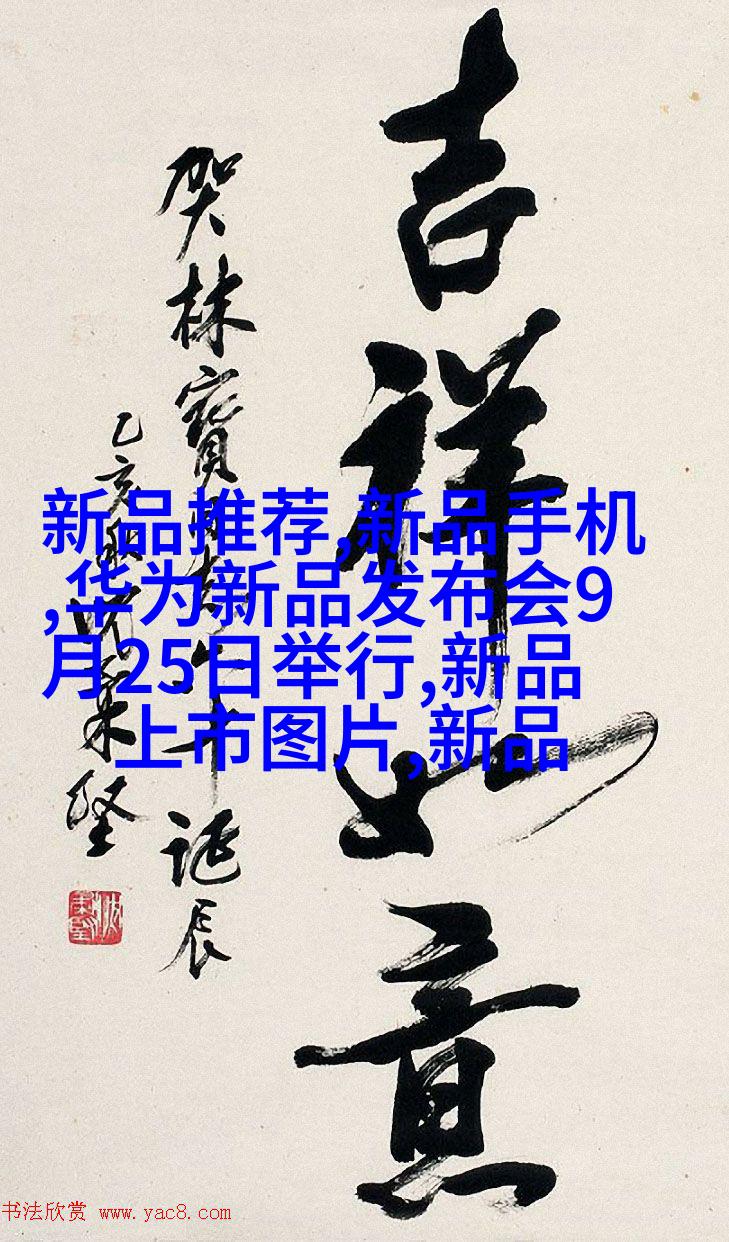 吉祥如意
贺林宝
诞辰
乙亥
新品推荐,新品手机
,华为新品发布会9
月25日举行,新品
上市图片,新品
书法欣赏 www.yac8.com